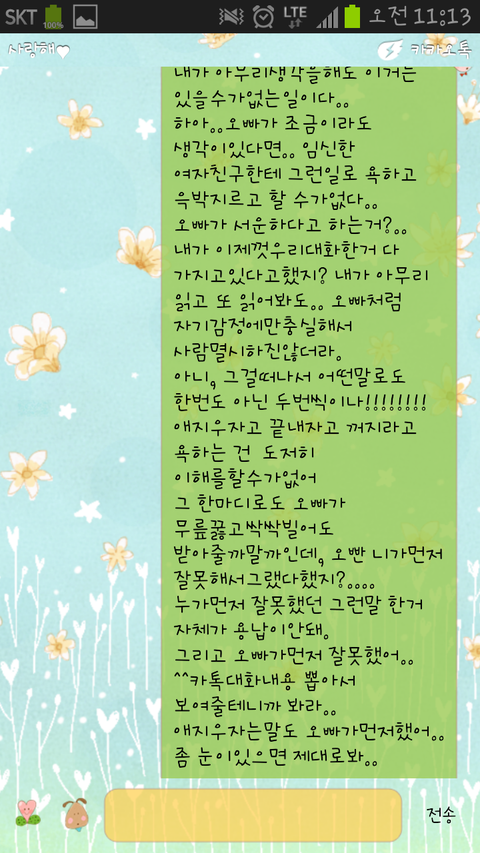 SKT 100% LTE 오전 11:13
사랑해♥ 카카오톡
내가 아무리생각을해도 이거는
있을수가없는일이다..
하아..오빠가 조금이라도
생각이있다면.. 임신한
여자친구한테 그런일로 욕하고
윽박지르고 할 수가없다..
오빠가 서운하다고 하는거?..
내가 이제껏우리대화한거 다
가지고있다고했지? 내가 아무리
읽고 또 읽어봐도.. 오빠처럼
자기감정에만충실해서
사람멸시하진않더라.
아니, 그걸떠나서 어떤말로도
한번도 아닌 두번씩이나!!!!!!!!
애지우자고 끝내자고 꺼지라고
욕하는 건 도저히
이해를할수가없어
그 한마디로도 오빠가
무릎꿇고싹싹빌어도
받아줄까말까인데, 오빤 니가먼저
잘못해서그랬다했지?....
누가먼저 잘못했던 그런말 한거
자체가 용납이안돼.
그리고 오빠가먼저 잘못했어..
^^카톡대화내용 뽑아서
보여줄테니까 봐라..
애지우자는말도 오빠가먼저했어..
좀 눈이있으면 제대로봐..
전송